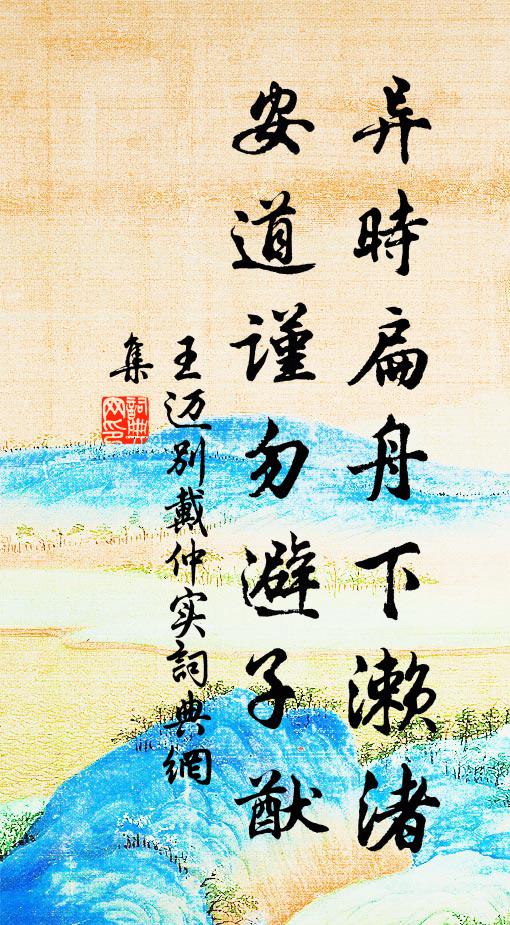 异時扁舟下濑渚
安道謹勿避子猷
王迈别戴仲实詞典網
集
詞典
网印